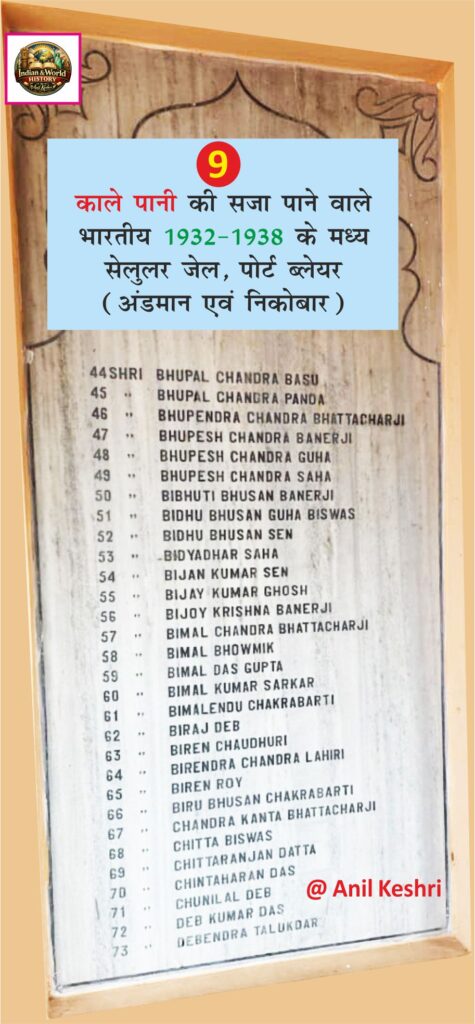 Indian & World
HISTORY
9
काले पानी की सजा पाने वाले
भारतीय 1932-1938 के मध्य
सेलुलर जेल, पोर्ट ब्लेयर
(अंडमान एवं निकोबार)
44 SHRI BHUPAL CHANDRA BASU
45 " BHUPAL CHANDRA PANDA
46 " BHUPENDRA CHANDRA BHATTACHARJI
47 " BHUPESH CHANDRA BANERJI
48 " BHUPESH CHANDRA GUHA
49 " BHUPESH CHANDRA SAHA
50 " BIBHUTI BHUSAN BANERJI
51 " BIDHU BHUSAN GUHA BISWAS
52 " BIDHU BHUSAN SEN
53 " BIDYADHAR SAHA
54 " BIJAN KUMAR SEN
55 " BIJAY KUMAR GHOSH
56 " BIJOY KRISHNA BANERJI
57 " BIMAL CHANDRA BHATTACHARJI
58 " BIMAL BHOWMIK
59 " BIMAL DAS GUPTA
60 " BIMAL KUMAR SARKAR
61 " BIMALENDU CHAKRABARTI
62 " BIRAJ DEB
63 " BIREN CHAUDHURI
64 " BIRENDRA CHANDRA LAHIRI
65 " BIREN ROY
66 " BIRU BHUSAN CHAKRABARTI
67 " CHANDRA KANTA BHATTACHARJI
68 " CHITTA BISWAS
69 " CHITTARANJAN DATTA
70 " CHINTAHARAN DAS
71 " CHUNILAL DEB
72 " DEB KUMAR DAS
73 " DEBENDRA TALUKDAR
@ Anil Keshri